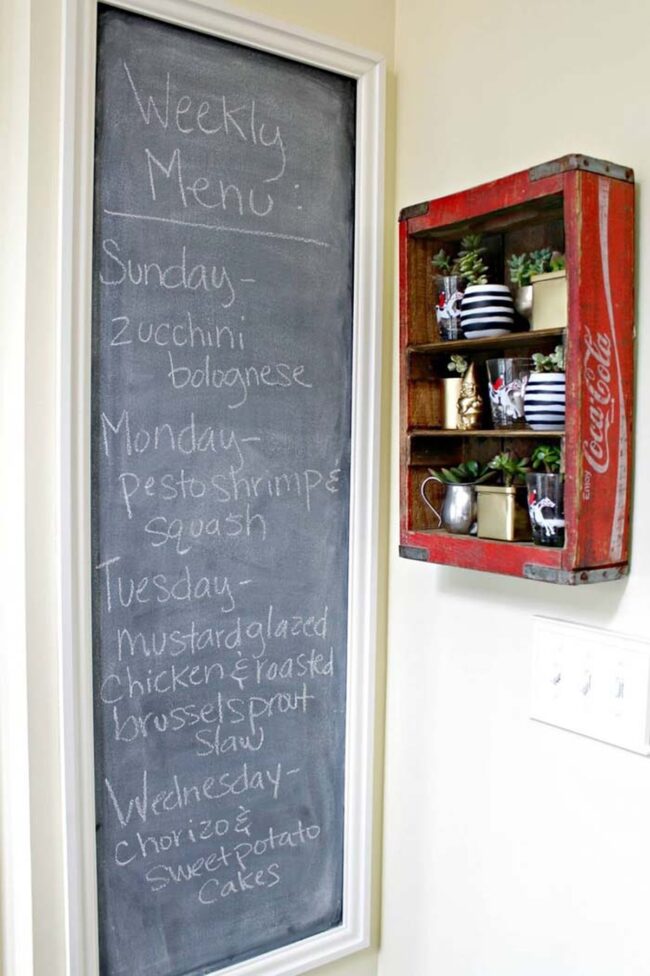 Weekly
Menu:
Sunday-
zucchini
bolognese
Monday-
pesto shrimp &
squash
Tuesday-
mustard glazed
chicken & roasted
brusselsprout
slaw
Wednesday-
chorizo &
sweet potato
cakes
Enjoy
Coca-Cola